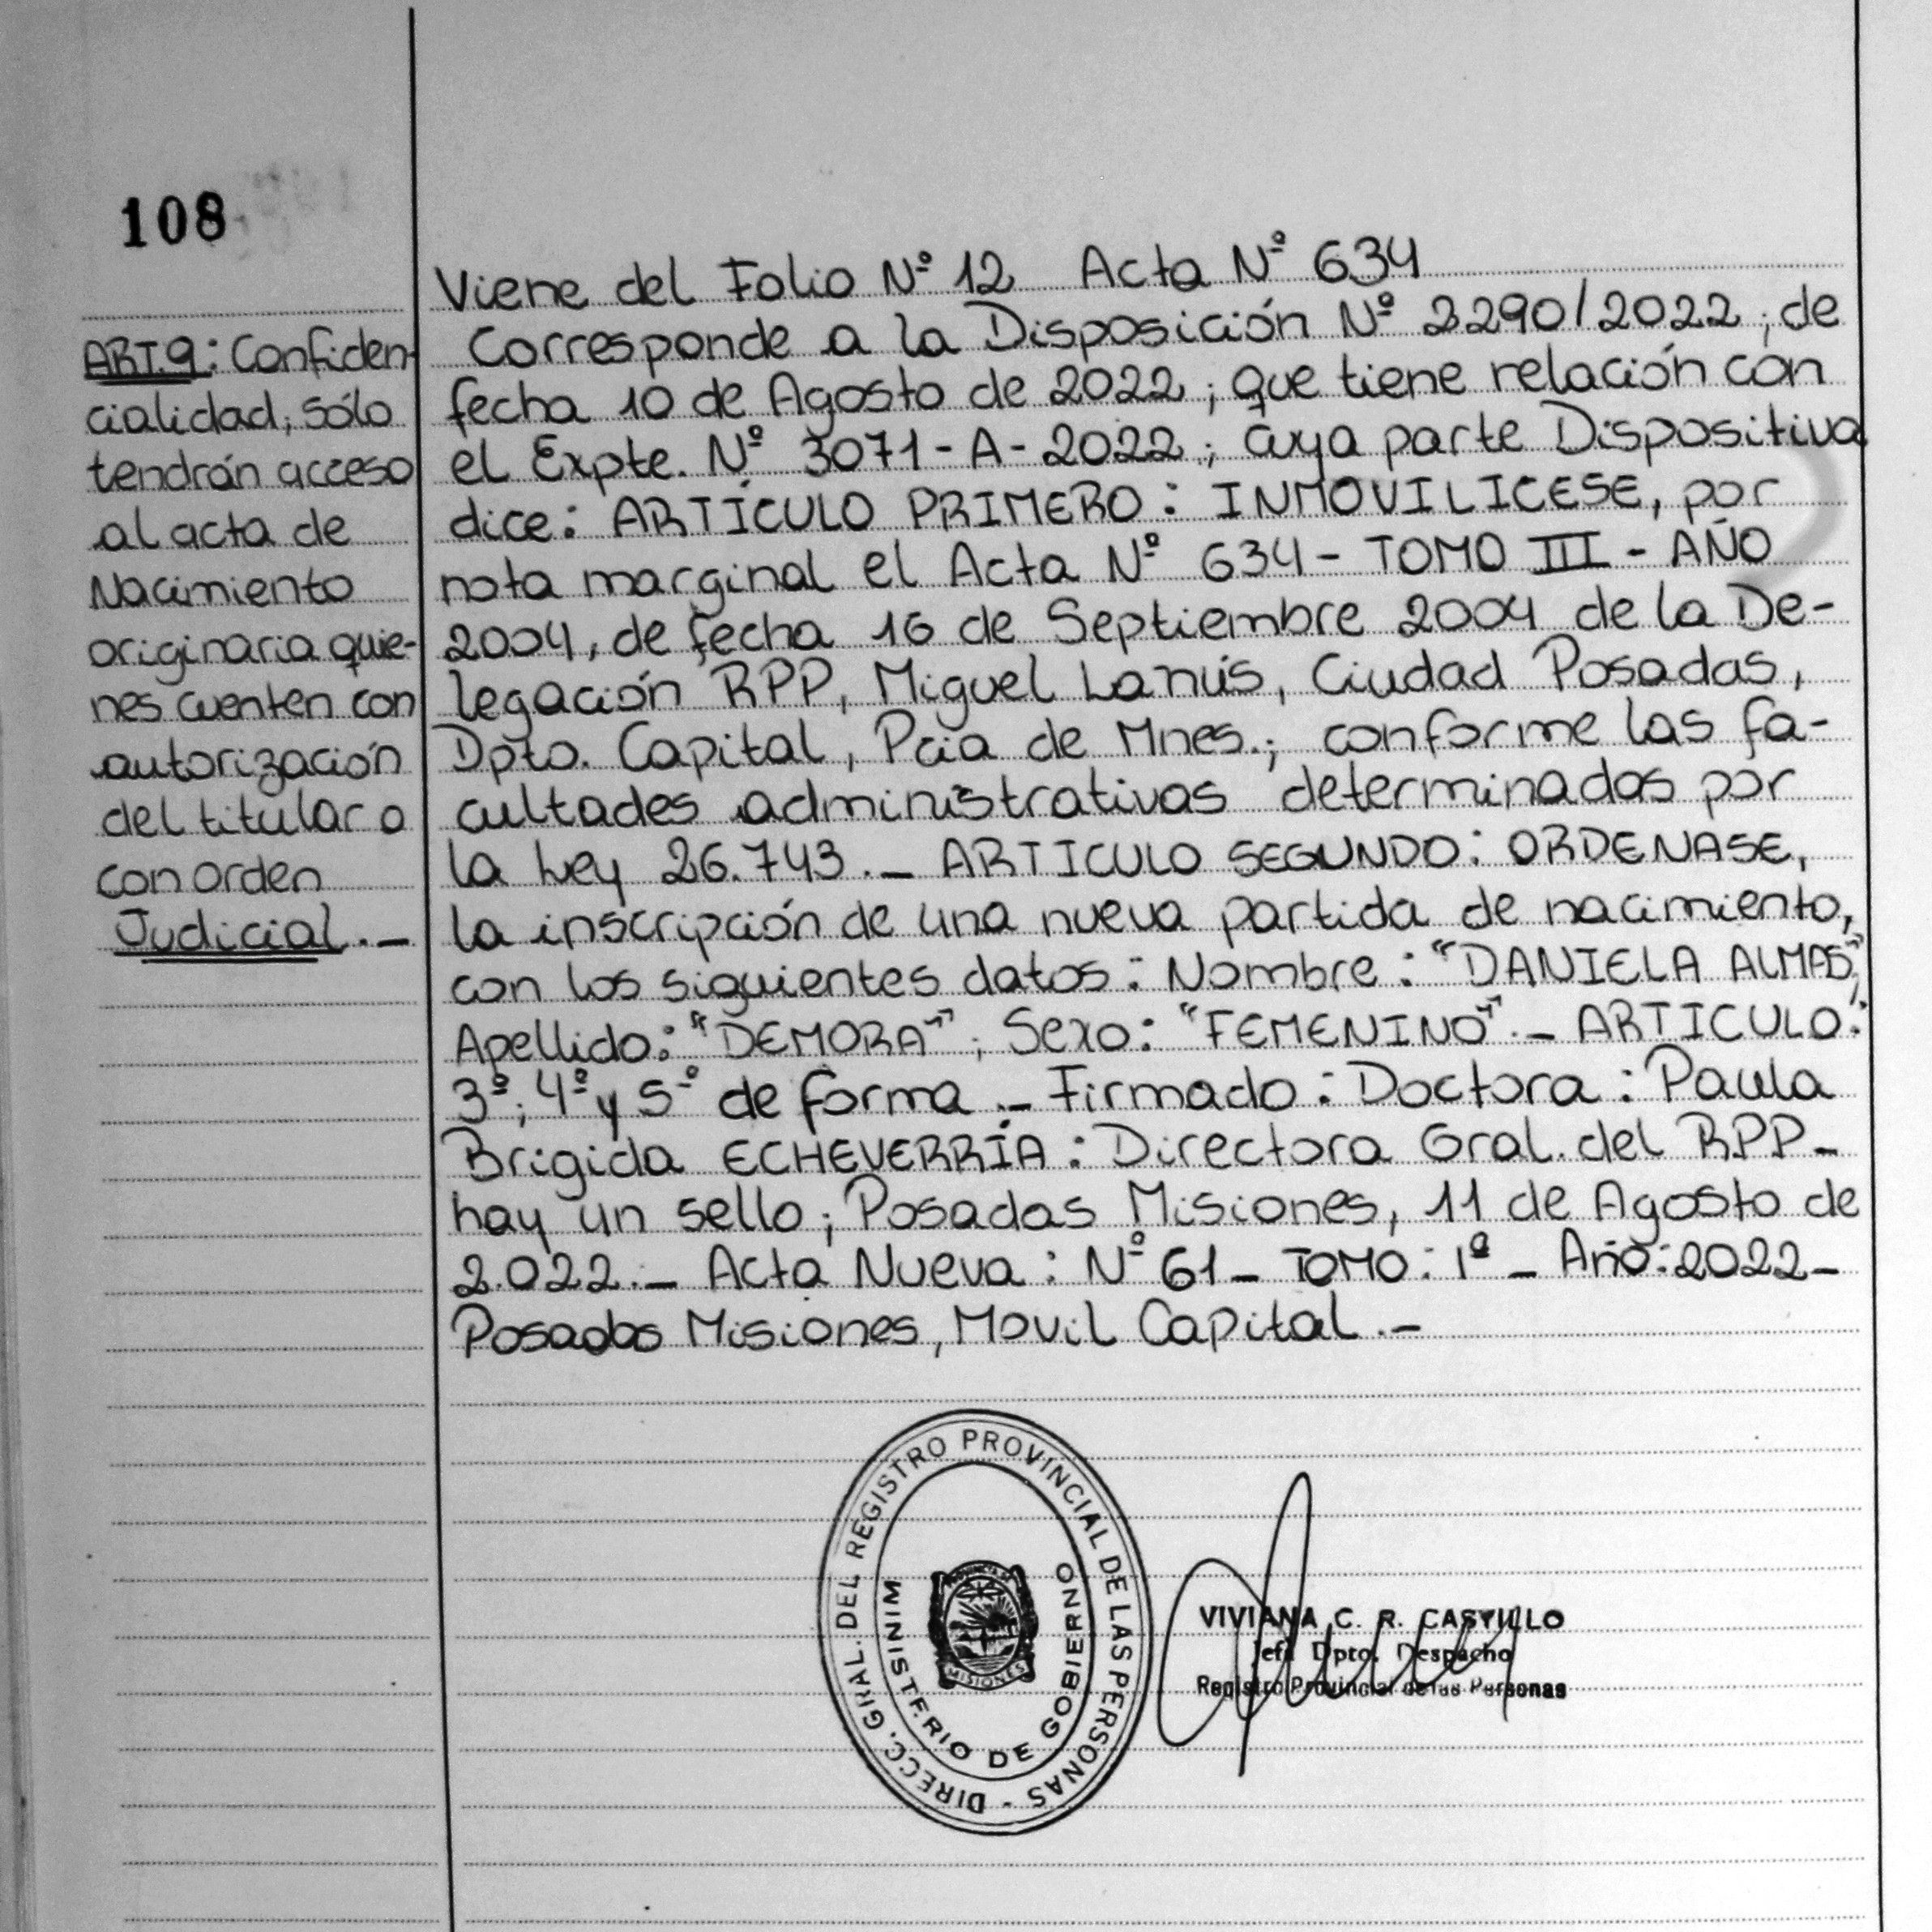 108
ART.9: Confiden-
cialidad; sólo
tendrán acceso
al acta de
Nacimiento
originaria quie-
nes cuenten con
autorización
del titular o
con orden
Judicial.-
Viene del Folio Nº 12 Acta Nº 634
Corresponde a la Disposición Nº 2290/2022; de
fecha 10 de Agosto de 2022; que tiene relación con
el Expte. Nº 3071-A-2022; cuya parte Dispositiva
dice: ARTÍCULO PRIMERO: INMOVILICESE, por
nota marginal el Acta Nº 634 - TOMO III - AÑO
2004, de fecha 16 de Septiembre 2004 de la De-
legación RPP, Miguel Lanús, Ciudad Posadas,
Dpto. Capital, Pcia de Mnes.; conforme las fa-
cultades administrativas determinadas por
la Ley 26.743.- ARTICULO SEGUNDO: ORDENASE,
la inscripción de una nueva partida de nacimiento,
con los siguientes datos: Nombre: "DANIELA ALMAS";
Apellido: "DEMORA"; Sexo: "FEMENINO".- ARTICULO:
3º; 4º y 5º de forma.- Firmado: Doctora: Paula
Brigida ECHEVERRÍA: Directora Gral. del RPP-
hay un sello; Posadas Misiones, 11 de Agosto de
2.022.- Acta Nueva: Nº 61- TOMO: 1º - Año: 2022-
Posadas Misiones, Movil Capital.-
DIRECC. GRAL. DEL REGISTRO PROVINCIAL DE LAS PERSONAS -
MINISTERIO DE GOBIERNO
MISIONES
VIVIANA C. R. CASTILLO
Jefe Dpto. Despacho
Registro Provincial de las Personas